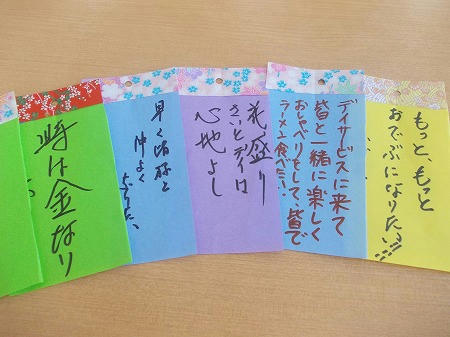 もっと、もっと
おでぶになりたい!!!
デイサービスに来て
皆と一緒に楽しく
おしゃべりをして、皆で
ラーメン食べたい。
花盛り
心地よし
早く
仲よく
なりたい、
時は金なり